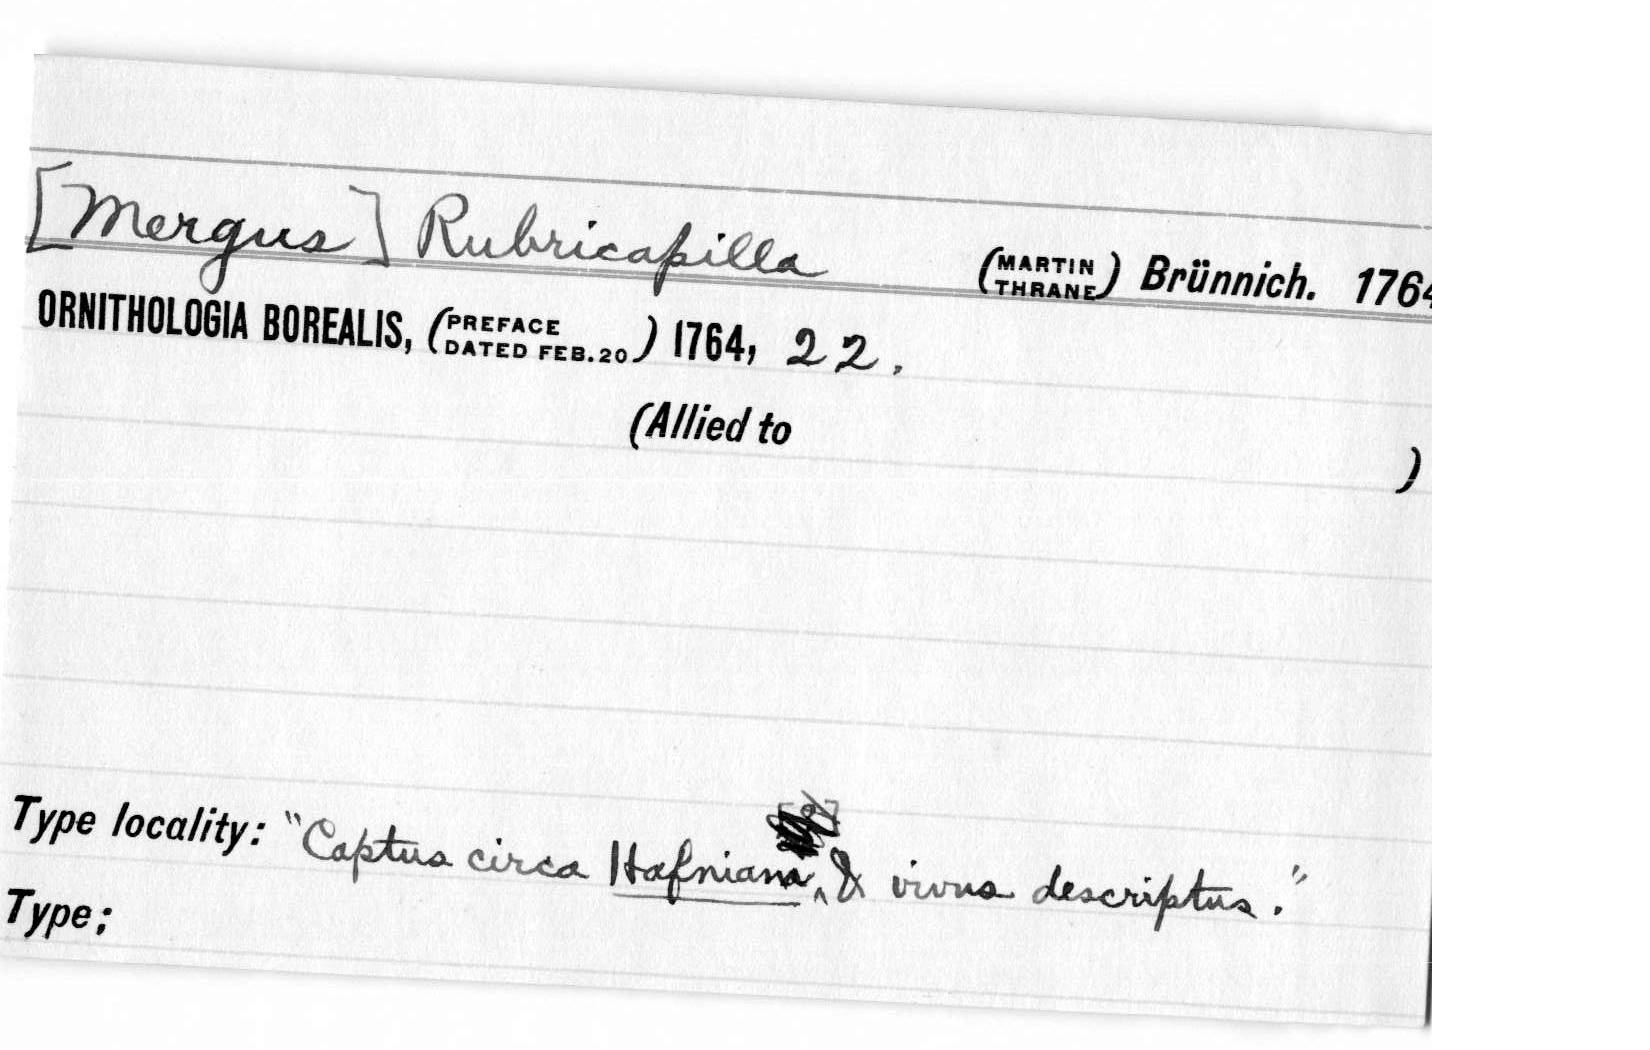 [Mergus] Rubricapilla (MARTIN THRANE) Brünnich. 1764
ORNITHOLOGIA BOREALIS, (PREFACE DATED FEB. 20) 1764, 22.
(Allied to )
Type locality: "Captus circa Hafniam & vivus descriptus."
Type: